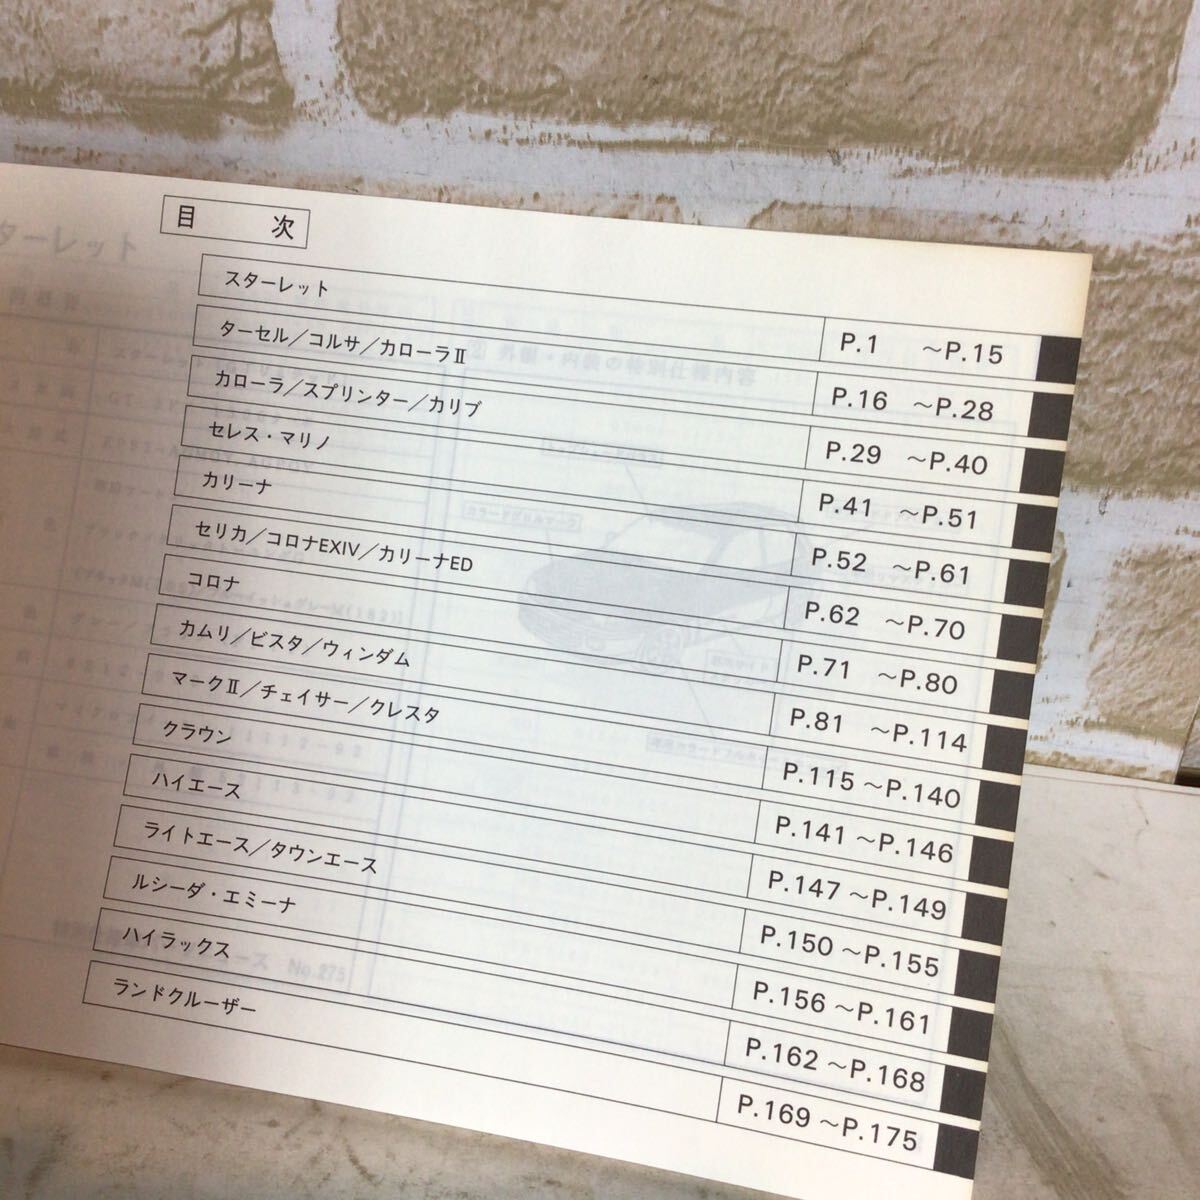 目 次
スターレット P.1 ～P.15
ターセル／コルサ／カローラII P.16 ～P.28
カローラ／スプリンター／カリブ P.29 ～P.40
セレス・マリノ P.41 ～P.51
カリーナ P.52 ～P.61
セリカ／コロナEXIV／カリーナED P.62 ～P.70
コロナ P.71 ～P.80
カムリ／ビスタ／ウィンダム P.81 ～P.114
マークII／チェイサー／クレスタ P.115 ～P.140
クラウン P.141 ～P.146
ハイエース P.147 ～P.149
ライトエース／タウンエース P.150 ～P.155
ルシーダ・エミーナ P.156 ～P.161
ハイラックス P.162 ～P.168
ランドクルーザー P.169 ～P.175
ターレット
② 外観・内装の特別仕様内容
No.275